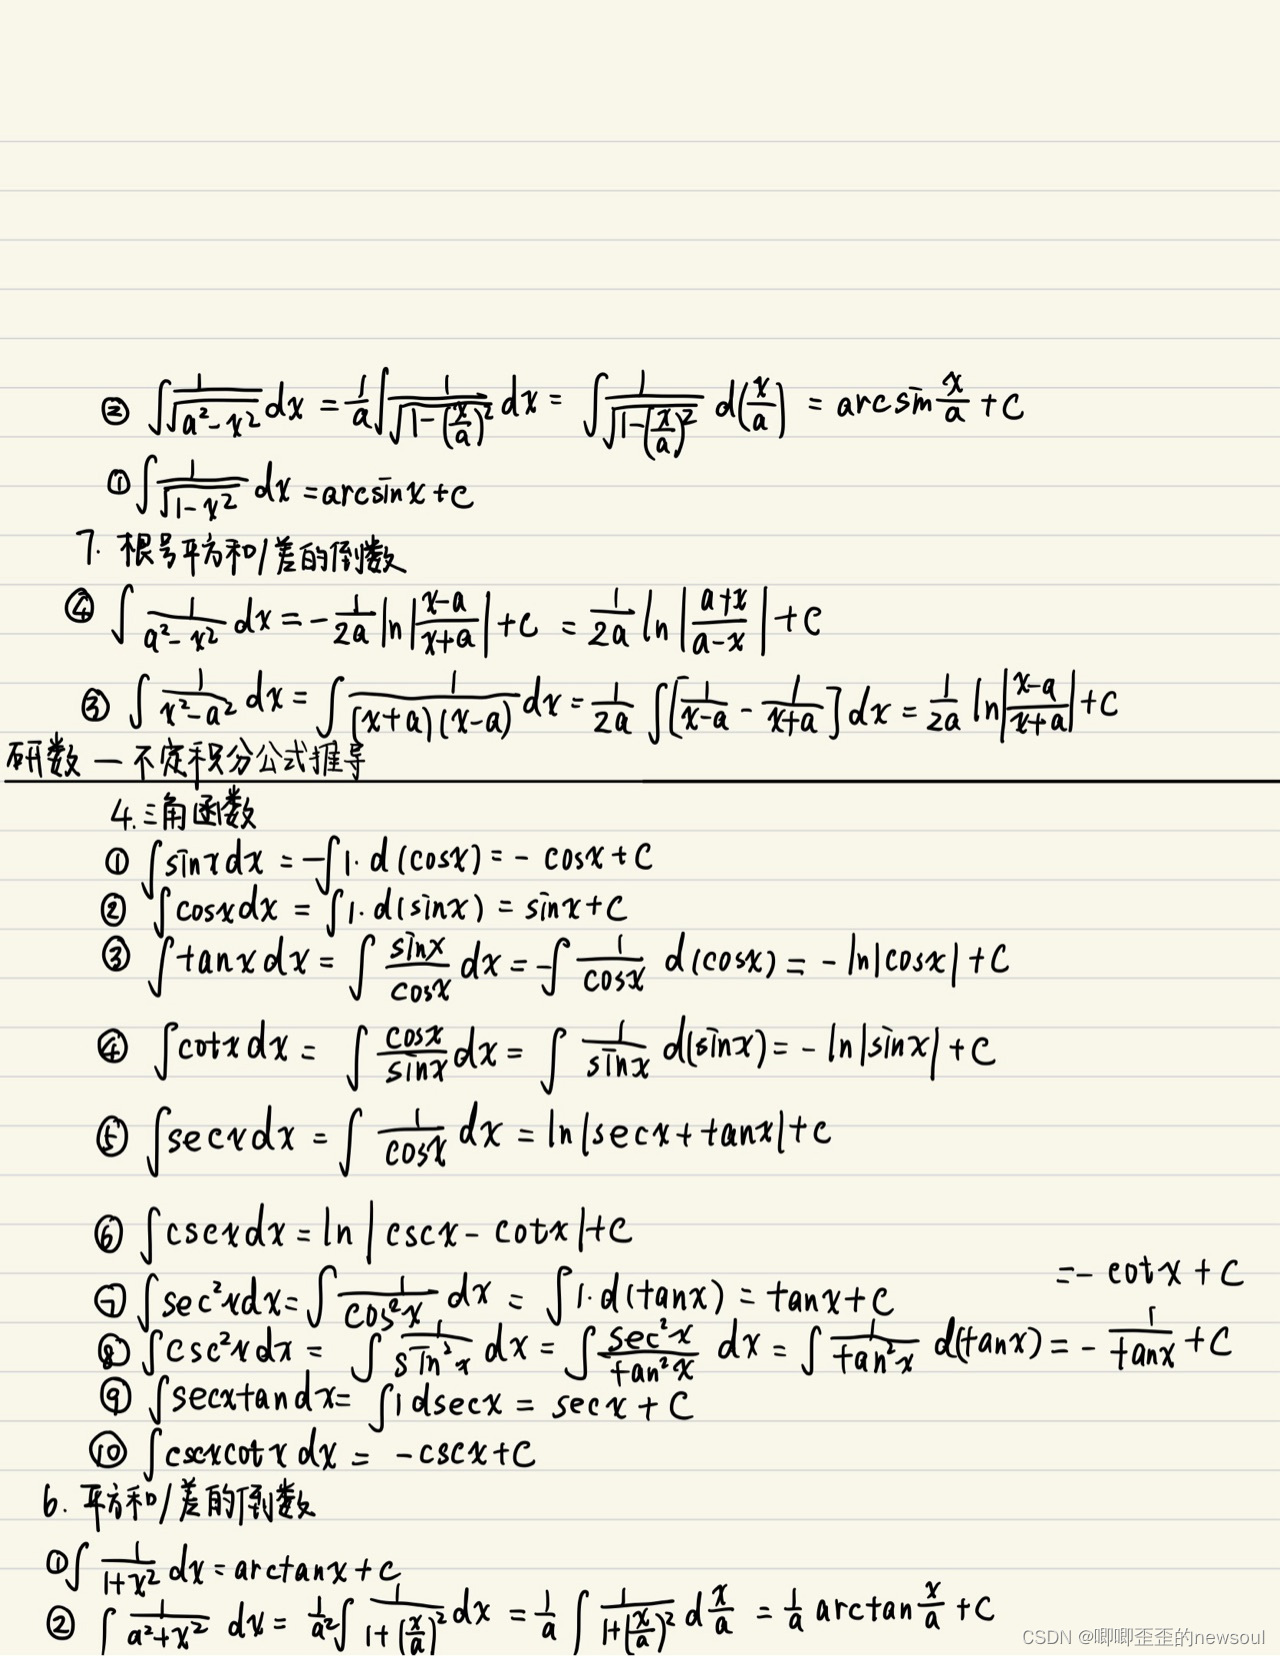 ② ∫1/√(a²-x²) dx = 1/a ∫1/√(1-(x/a)²) dx = ∫1/√(1-(x/a)²) d(x/a) = arcsin x/a + C
① ∫1/√(1-x²) dx = arcsinx+C
7. 根号平方和/差的倒数
④ ∫1/(a²-x²) dx = -1/2a ln|(x-a)/(x+a)| +C = 1/2a ln|(a+x)/(a-x)| +C
③ ∫1/(x²-a²) dx = ∫1/((x+a)(x-a)) dx = 1/2a ∫[1/(x-a) - 1/(x+a)] dx = 1/2a ln|(x-a)/(x+a)| +C
研数一不定积分公式推导
4.三角函数
① ∫sinxdx = -∫1·d(cosx) = -cosx+C
② ∫cosxdx = ∫1·d(sinx) = sinx+C
③ ∫tanxdx = ∫sinx/cosx dx = -∫1/cosx d(cosx) = -ln|cosx|+C
④ ∫cotxdx = ∫cosx/sinx dx = ∫1/sinx d(sinx) = -ln|sinx|+C
⑤ ∫secxdx = ∫1/cosx dx = ln|secx+tanx|+C
⑥ ∫cscxdx = ln|cscx-cotx|+C
=-cotx+C
⑦ ∫sec²xdx = ∫1/cos²x dx = ∫1·d(tanx) = tanx+C
⑧ ∫csc²xdx = ∫1/sin²x dx = ∫sec²x/tan²x dx = ∫1/tan²x d(tanx) = -1/tanx +C
⑨ ∫secxtandx = ∫1dsecx = secx+C
⑩ ∫cscxcotxdx = -cscx+C
6. 平方和/差的倒数
① ∫1/(1+x²) dx = arctanx+C
② ∫1/(a²+x²) dx = 1/a² ∫1/(1+(x/a)²) dx = 1/a ∫1/(1+(x/a)²) d x/a = 1/a arctan x/a +C
CSDN @唧唧歪歪的newsoul